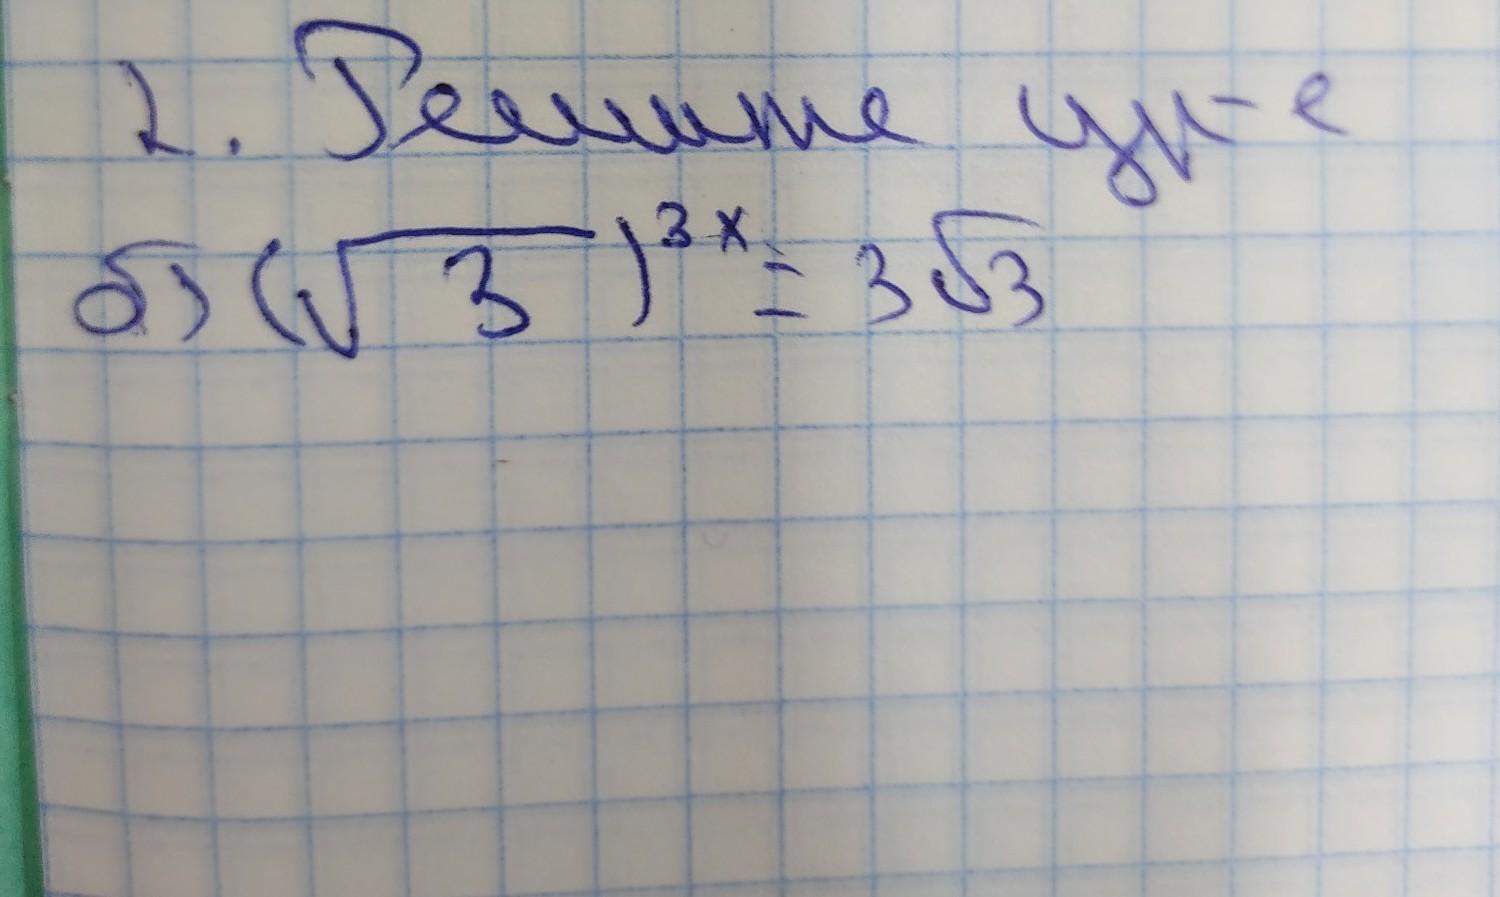 2. Решите ур-е
б) (√3)^3x = 3√3